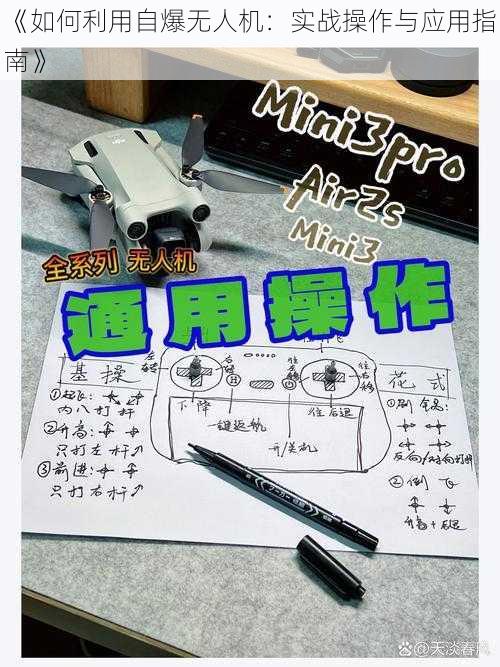 《如何利用自爆无人机：实战操作与应用指
南》
Mini3pro
Air2s
Mini3
全系列 无人机
通用操作
基操
①起飞:
内八打杆
②升高:
只打左杆
③前进:
只打右杆
下降
一键返航
开/关机
往后退
花式
①刷锅:
反向/对向打杆
②倒飞
升高+后退
dji
@天淡春风